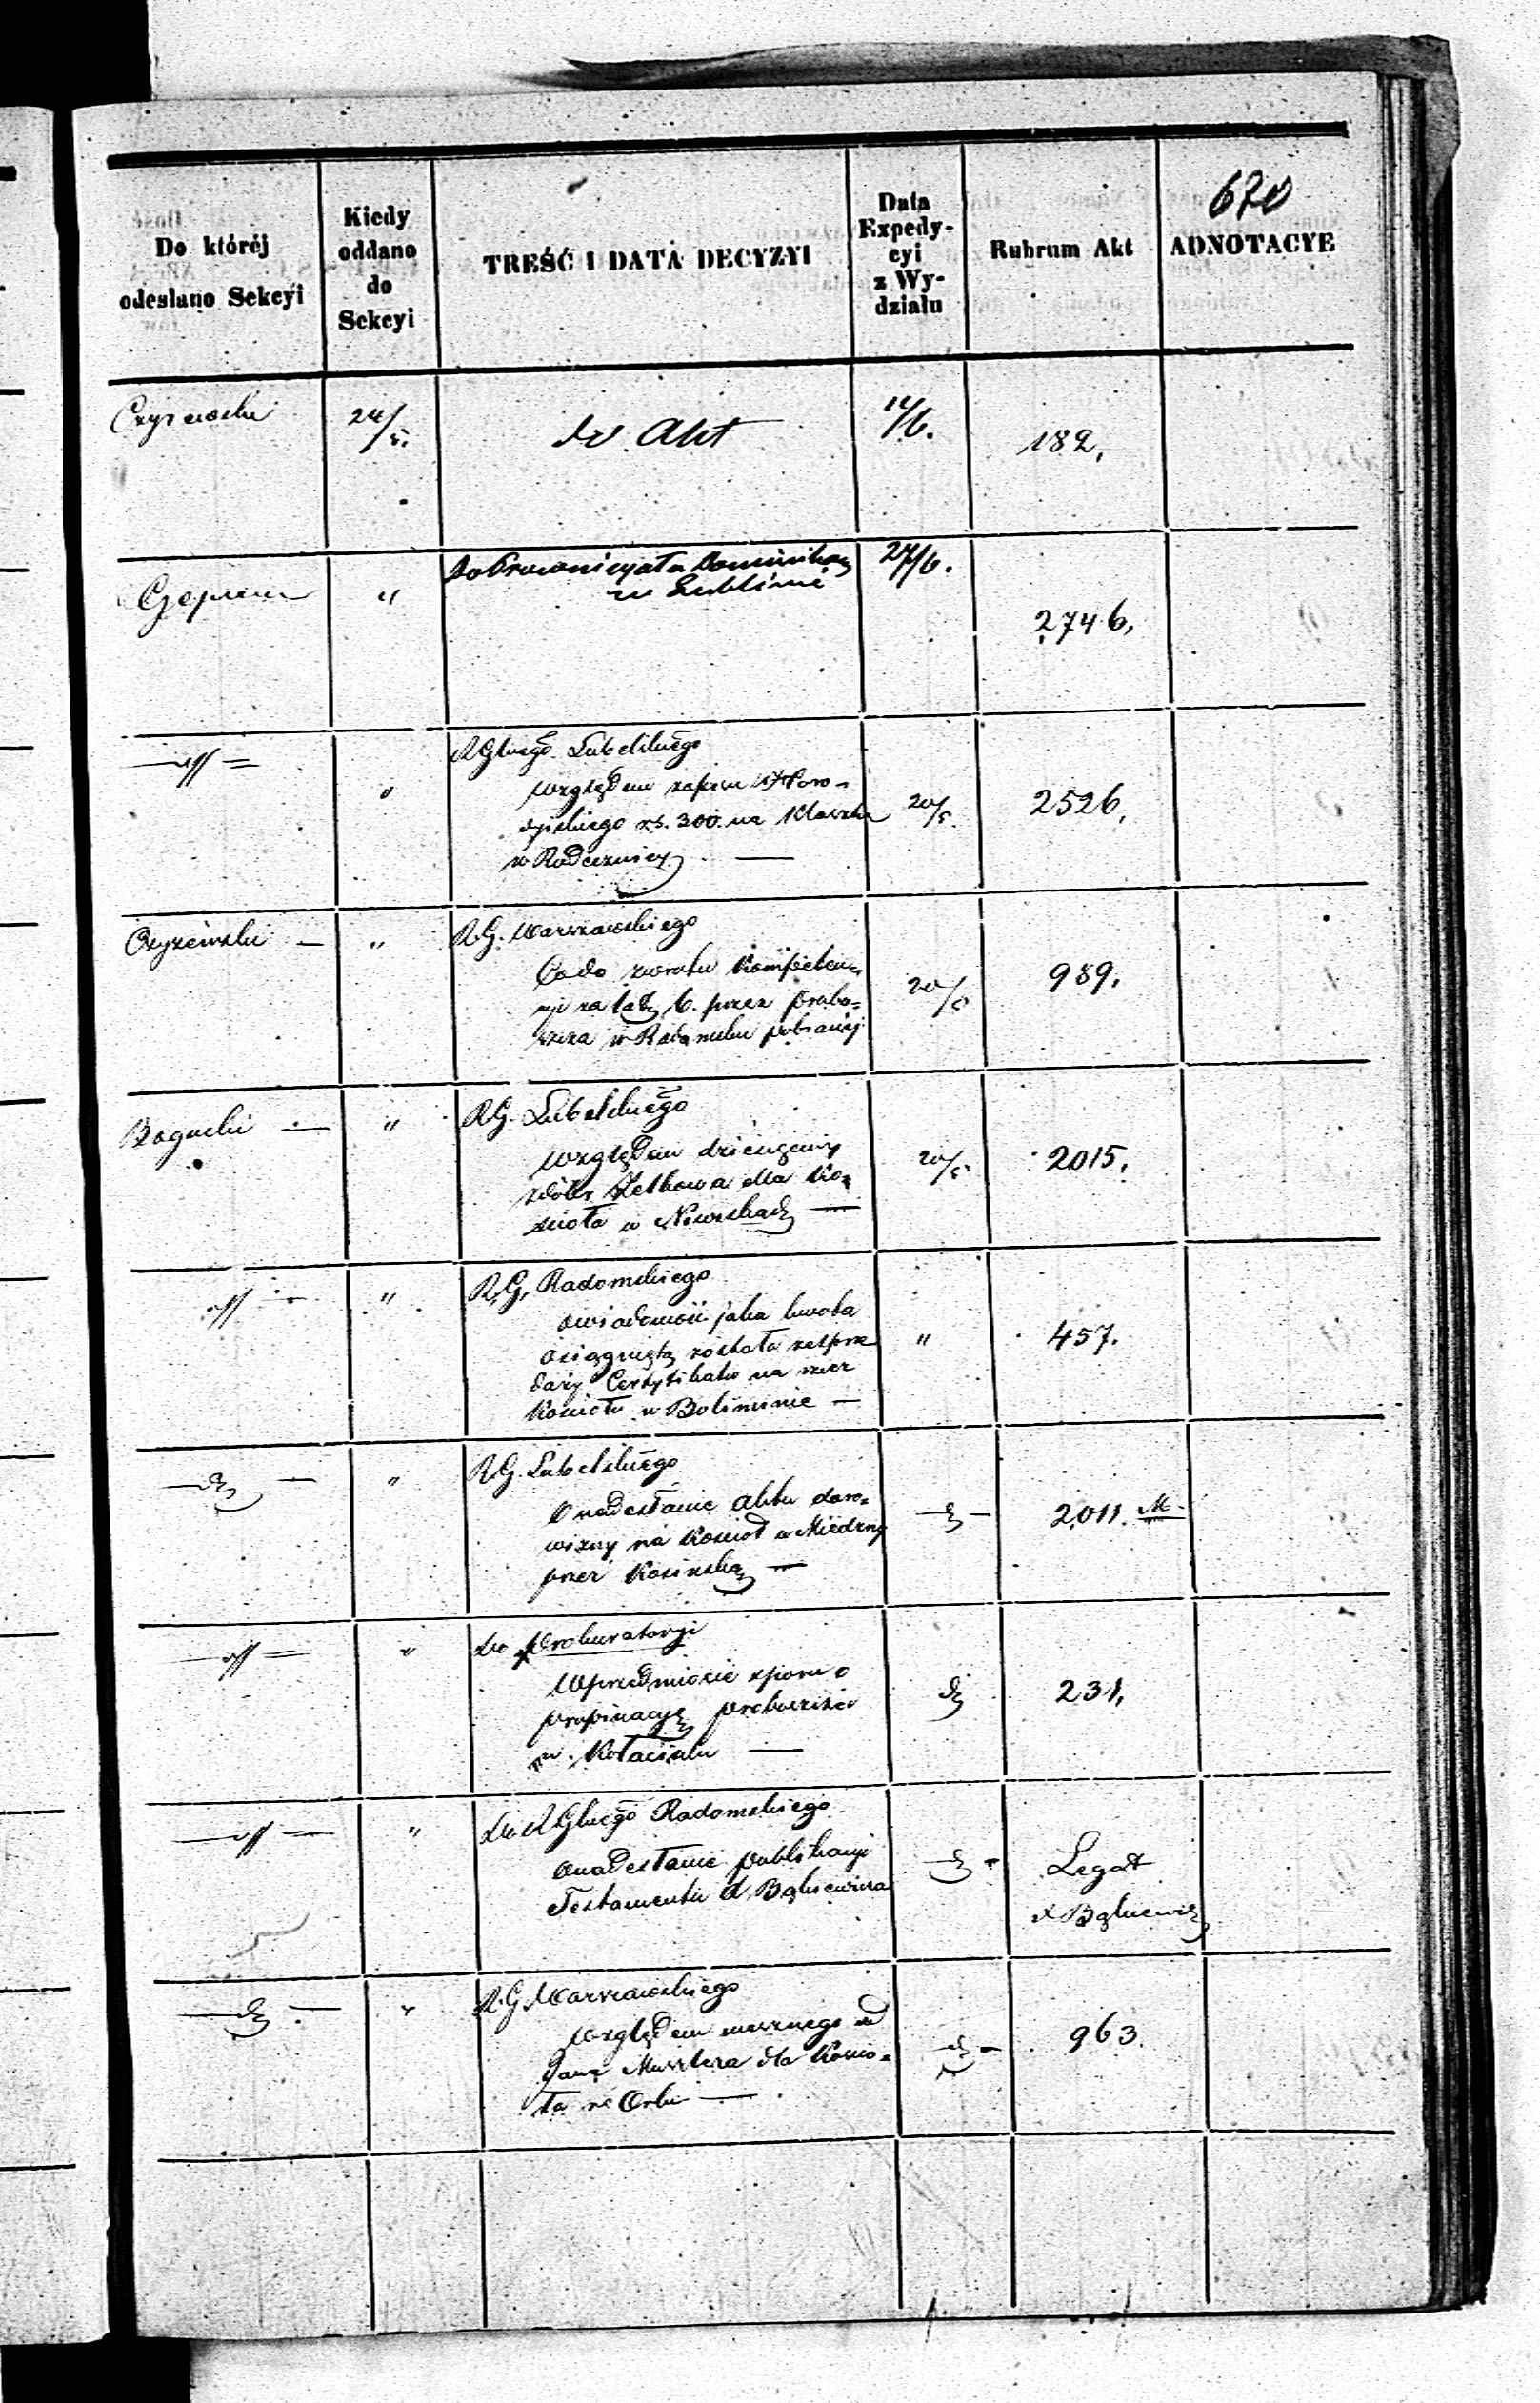 670
Do któréj
odesłano Sekcyi
Kiedy
oddano
do
Sekcyi
TREŚĆ I DATA DECYZYI
Data
Expedy-
cyi
z Wy-
działu
Rubrum Akt
ADNOTACYE
24/5.
do Akt
14/6.
182.
"
Dominikan
w Lublinie
27/6.
2746.
"
RGlnego Lubelskiego
względem zapisu
rs. 300. na Klaszto
w Radecznicy —
20/5.
2526.
Czyżewski —
"
R.G. Warszawskiego
Co do zwrotu Kompeten-
cyi za lata 6. przez probo-
szcza w pobranej
20/5
989.
Bogucki —
"
R.G. Lubelskiego
względem dziesięciny
z dóbr dla Ko-
ścioła w —
20/5.
2015.
"
R.G. Radomskiego
o wiadomość jaka kwota
osiągniętą została ze sprze
daży Certyfikatu na rzecz
Kościoła w Boliminie —
"
457.
"
R.G. Lubelskiego
O nadesłanie aktu daro-
wizny na Kościoł w
przez Kosińską —
2011. M.
"
Do Prokuratoryi
W przedmiocie sporu o
propinacyę proboszcza
w Kołacinku —
231.
"
Do RGlnego Radomskiego
o nadesłanie publikacyi
Testamentu X Bąkiewicza
Legat
X Bąkiewicz
"
R.G. Warszawskiego
Względem mesznego od
Jana dla Kościo-
ła w —
963.